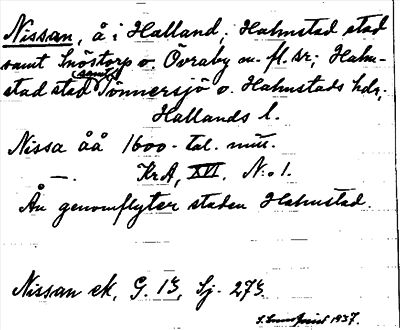 Nissan, å i Halland; Halmstad stad
samt Snöstorp o. Övraby m. fl. sr; Halm-
stad stad samt Tönnersjö o. Halmstads hdr,
Hallands l.
Nissa åå 1600-tal. mitt.
—. KrA, XVI. N:o 1.
Ån genomflyter staden Halmstad.
Nissan ek, G. 13, Sj. 273
1937.